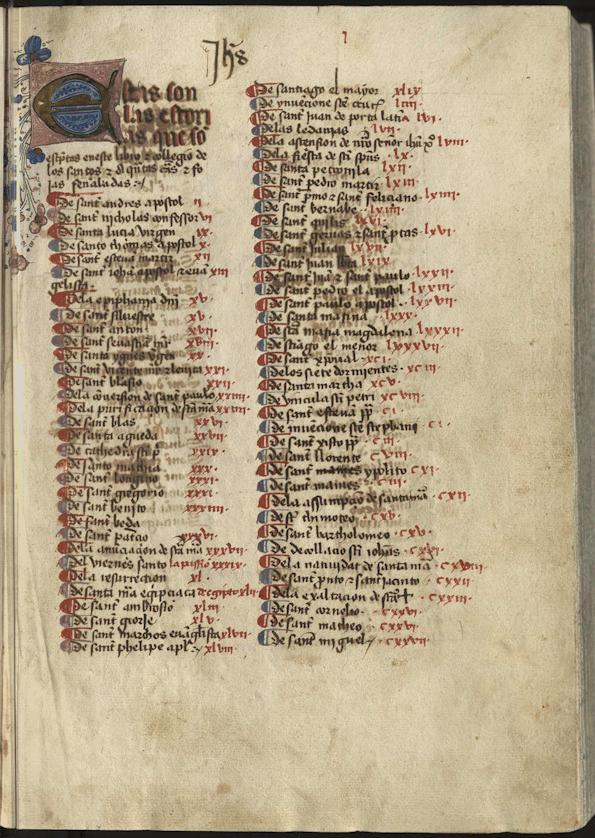 Jhs
Estas son
las estori
as que so
escriptas en este libro & collegio de
los santos &
jas señaladas
De sant andres apostol ii
De sant nicholas confessor vi
De santa lucia virgen ix
De santo thomas apostol x
De sant estevan martir xii
De sant iohan apostol & evan xiii
gelista
Dela epiphania dñi xv
De sant silvestre xv
De sant anton xvii
De sant sevastian xviii
De santa ygnes vgen xx
De sant vicente mr & levita xxi
De sant blasio xxii
Dela conversion de sant paulo xxiii
Dela purificacion de sta mª xxiiii
De sant blas xxvi
De santa agueda xxvii
De cathedra sti p xxix
De santo mathia xxx
De sant longino xxxi
De sant gregorio xxxi
De sant benito xxxiii
De sant beda
De sant patricio xxxvi
Dela anunciacion de sta mª xxxvii
Del viernes santo la passio xxxix
Dela resurrection xl
De santa mª egipciaca de egipto xlii
De sant ambrosio xliii
De sant giorje xlv
De sant marchos evangelista xlvii
De sant phelipe apl xlviii
1
De santiago el mayor xlix
De ynvencione ste crucis liii
De sant juan de porta latia lvi
Delas ledanias lvii
Dela ascension de nro señor ihu xpo lviii
Dela fiesta de sti spus lx
De santa petronila lxii
De sant pedro martir lxii
De sant pmo & sant feliciano lxiiii
De sant bernabe lxiiii
De sant quilis lxvi
De sant gervas & sant ptas lxvi
De sant julian lxvii
De sant juan lxix
De sant juª & sant paulo lxxii
De sant pedro el apostol lxxiii
De sant paulo apostol lxxvii
De santa marina lxxx
De sta maria magdalena lxxxii
De stiago el menor lxxxvii
De sant xpoval xci
Delos siete dormientes xciii
De santa martha xcv
De vincula sti petri xcviii
De sant estevan pp ci
De invencione ste stephani ci
De sant sixto pp ciii
De sant llorente cviii
De sant mames ypolito cxi
De sant mames ciii
Dela assumpcio de santa mª cxii
De st timoteo cxv
De sant bartholomeo cxv
De decollacio sti iohis cxxi
Dela navidat de santa mª cxviii
De sant pnto & sant jacinto cxxii
Dela exaltacion de sta + cxxiii
De sant cornelio cxxvi
De sant matheo cxxvi
De sant miguel cxxvii